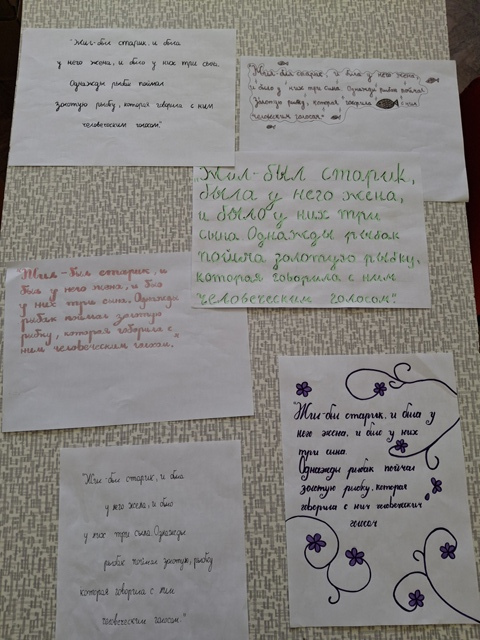 "Жил-был старик, и была
у него жена, и было у них три сына.
Однажды рыбак поймал
золотую рыбку, которая говорила с ним
человеческим голосом."
"Жил-был старик, и была у него жена,
и было у них три сына. Однажды рыбак поймал
золотую рыбку, которая говорила с ним
человеческим голосом."
"Жил-был старик,
была у него жена,
и было у них три
сына. Однажды рыбак
поймал золотую рыбку,
которая говорила с ним
человеческим голосом".
"Жил-был старик, и
был у него жена, и было
у них три сына. Однажды
рыбак поймал золотую
рыбку, которая говорила с
ним человеческим голосом."
"Жил-был старик, и была у
него жена, и было у них
три сына.
Однажды рыбак поймал
золотую рыбку, которая
говорила с ним человеческим
голосом
"Жил-был старик, и была
у него жена, и было
у них три сына. Однажды
рыбак поймал золотую, рыбку
которая говорила с ним
человеческим голосом."